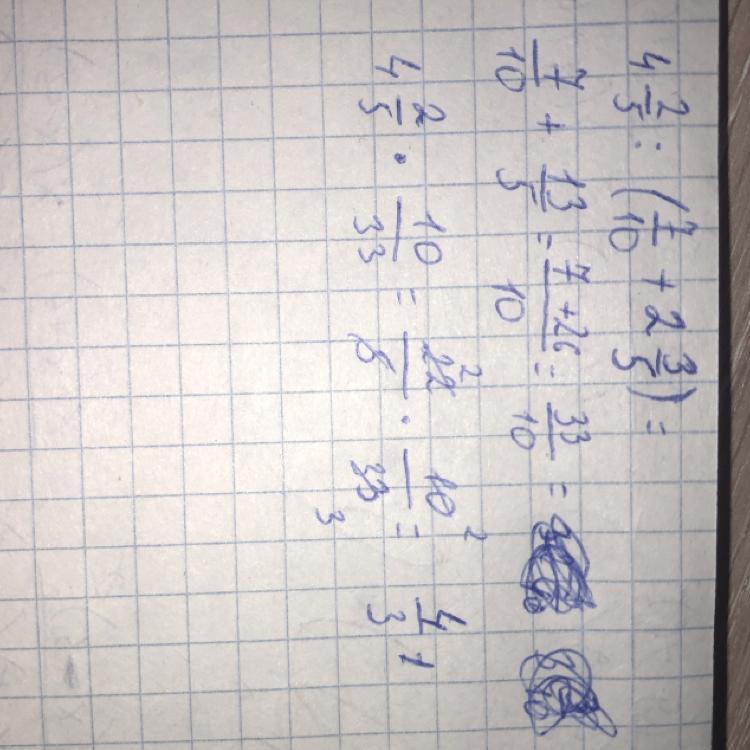 4 2/5 : (7/10 + 2 3/5) =
7/10 + 13/5 = 7+26/10 = 33/10 =
4 2/5 · 10/33 = 22 2/5 · 10 2/33 3 = 4/3 1